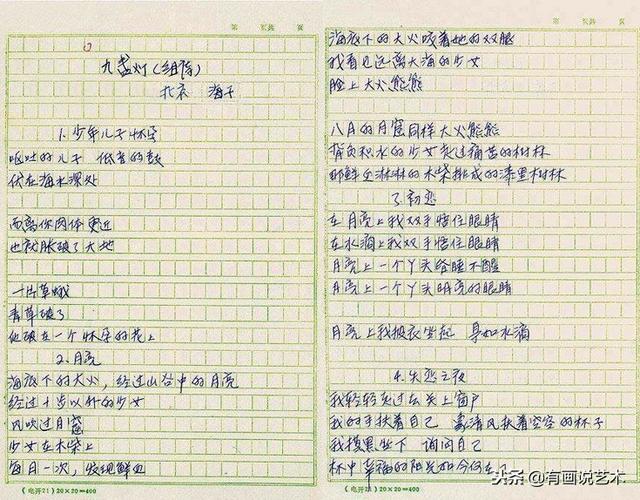 第 页共 页
6
九盏灯(组诗)
北京 海子
1.少年儿子怀孕
呕吐的儿子 低音的鼓
伏在海水深处
而离你肉体更近
也就胀破了大地
一片草蛾
青草破了
他破在一个怀孕的花上
2.月亮
海底下的大火,经过山谷中的月亮
经过十步以外的少女
风吹过月窟
少女在木柴上
每月一次,发现鲜血
(电开21)20×20=400
第 页共 页
海底下的大火咬着她的双腿
我看见远离大海的少女
脸上大火熊熊
八月的月窟同样大火熊熊
背负积水的少女走过痛苦的树林
那鲜血淋淋的木柴排成的漆黑树林
3.初恋
在月亮上我双手捂住眼睛
在水滴上我双手捂住眼睛
月亮上一个丫头昏睡不醒
月亮上一个丫头明亮的眼睛
月亮上我披衣坐起 身如水滴
4.失恋之夜
我轻轻走过去关上窗户
我的手扶着自己 像清风扶着空空的杯子
我摸黑坐下 询问自己
杯中幸福的阳光如今何在
(电开21)20×20=400
头条@有画说艺术